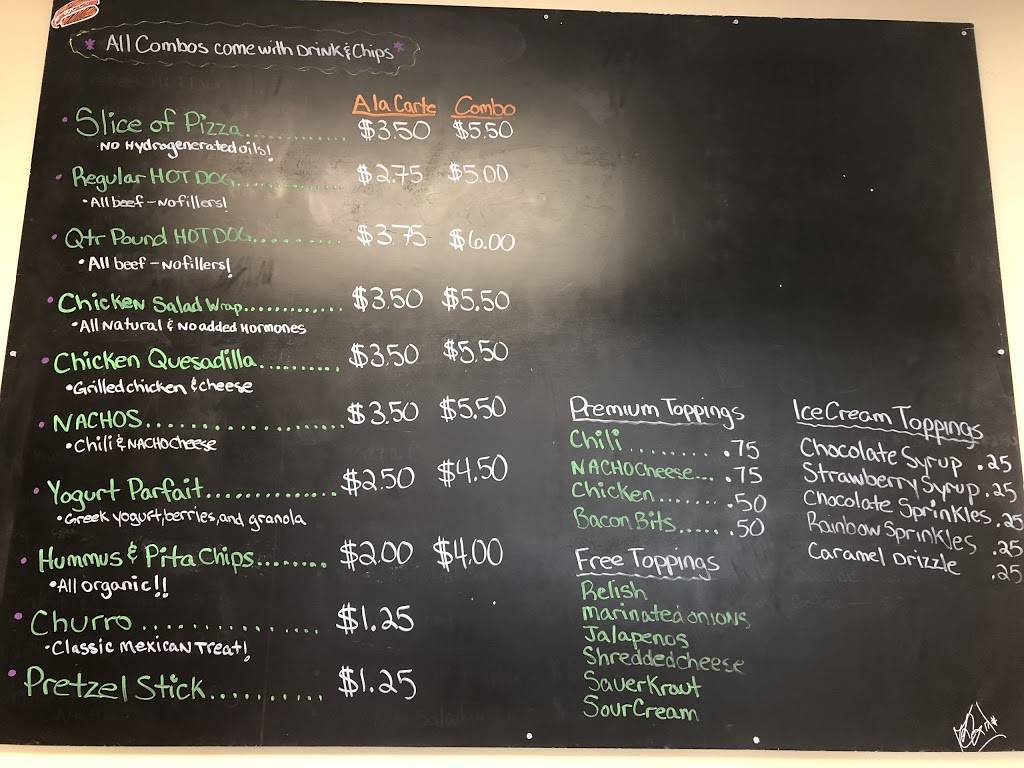 * All Combos come with Drink & Chips *
A la Carte Combo
• Slice of Pizza............ $3.50 $5.50
No Hydrogenated oils!
• Regular HOT DOG............ $2.75 $5.00
• All beef - No fillers!
• Qtr Pound HOT DOG.......... $3.75 $6.00
• All beef - No fillers!
• Chicken Salad Wrap............ $3.50 $5.50
• All Natural & No added Hormones
• Chicken Quesadilla.......... $3.50 $5.50
• Grilled chicken & cheese
• NACHOS.................... $3.50 $5.50
• Chili & NACHO Cheese
• Yogurt Parfait............... $2.50 $4.50
• Greek yogurt, berries, and granola
• Hummus & Pita Chips........ $2.00 $4.00
• All organic!!
• Churro................ $1.25
• Classic Mexican Treat!
• Pretzel Stick.......... $1.25
Premium Toppings
Chili......... .75
NACHO Cheese... .75
Chicken....... .50
Bacon Bits..... .50
Free Toppings
Relish
marinated onions
Jalapenos
Shredded cheese
SauerKraut
Sour Cream
Ice Cream Toppings
Chocolate Syrup .25
Strawberry Syrup .25
Chocolate Sprinkles .25
Rainbow Sprinkles .25
Caramel Drizzle .25